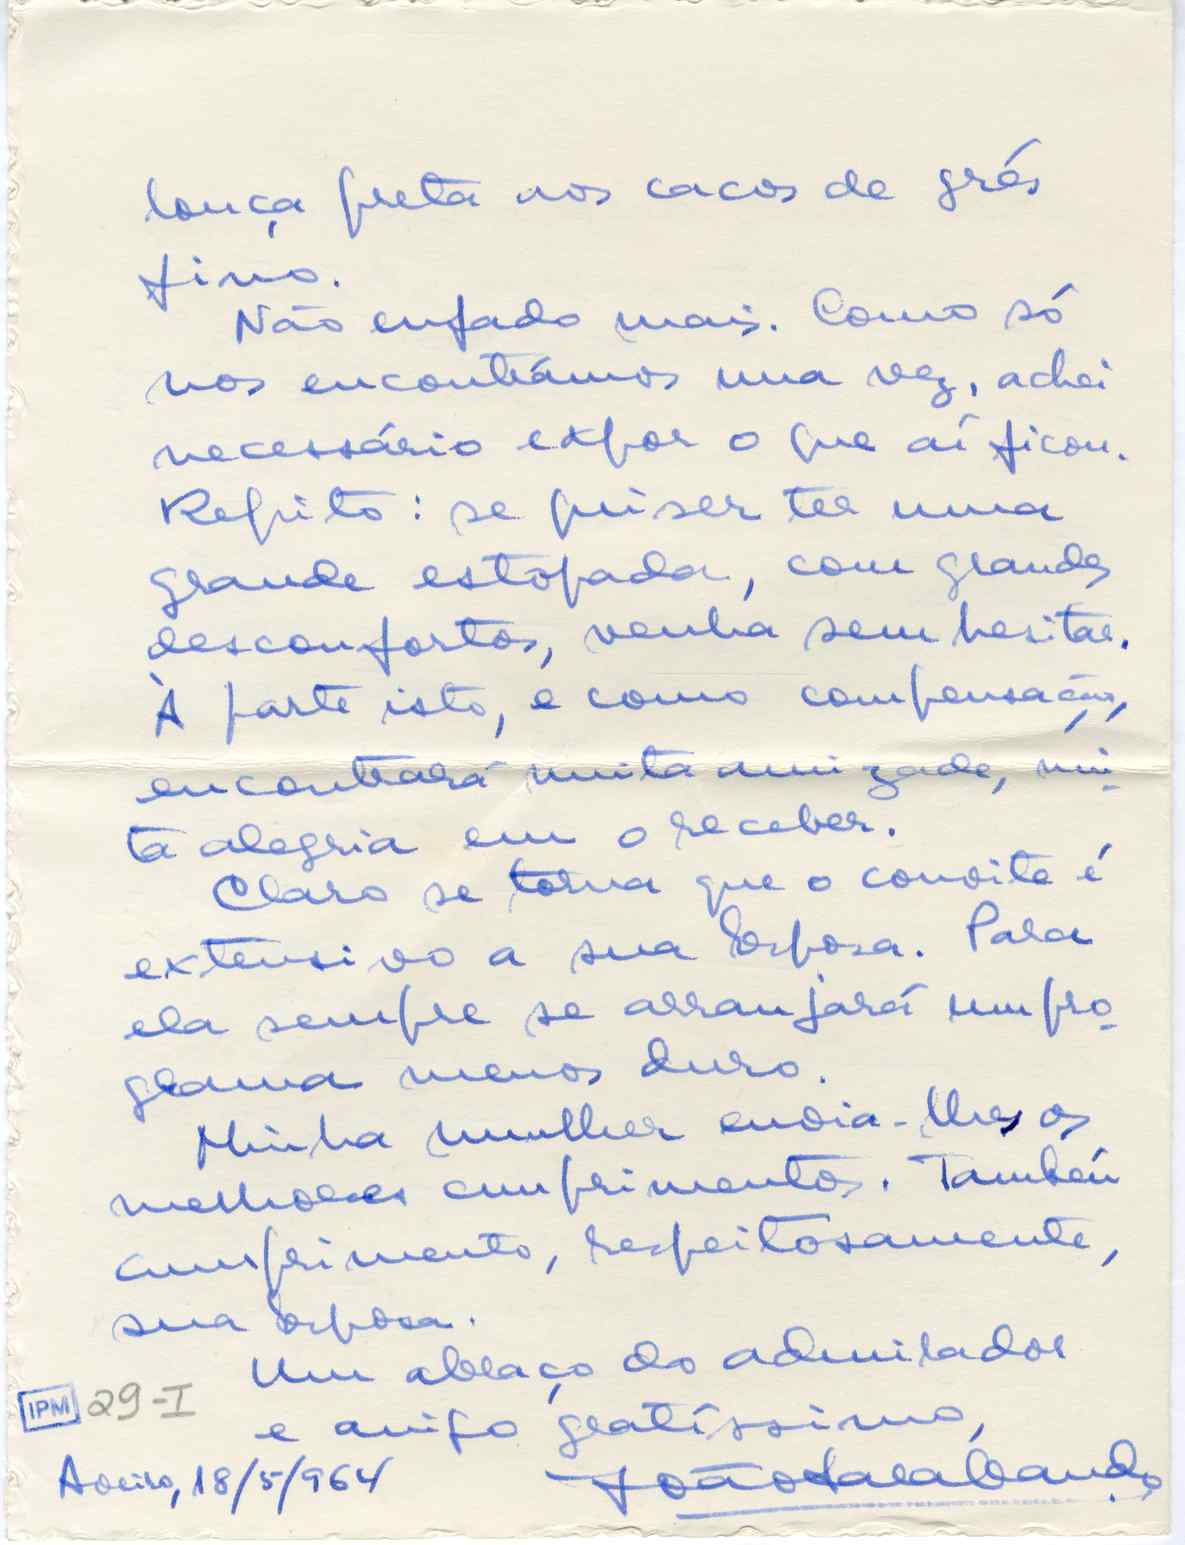 louça preta nos cacos de grés
fino.
Não enfado mais. Como só
nos encontrámos uma vez, achei
necessário expor o que aí ficou.
Repito: se quiser ter uma
grande estopada, com grandes
desconfortos, venha sem hesitar.
À parte isto, e como compensação,
encontrará muita amizade, mui-
ta alegria em o receber.
Claro se torna que o convite é
extensivo a sua Esposa. Para
ela sempre se arranjará um pro-
grama menos duro.
Minha mulher envia-lhes os
melhores cumprimentos. Também
cumprimento, respeitosamente,
sua Esposa.
Um abraço do admirador
e amigo gratíssimo,
IPM 29-I
Aveiro, 18/5/964
João Sarabando